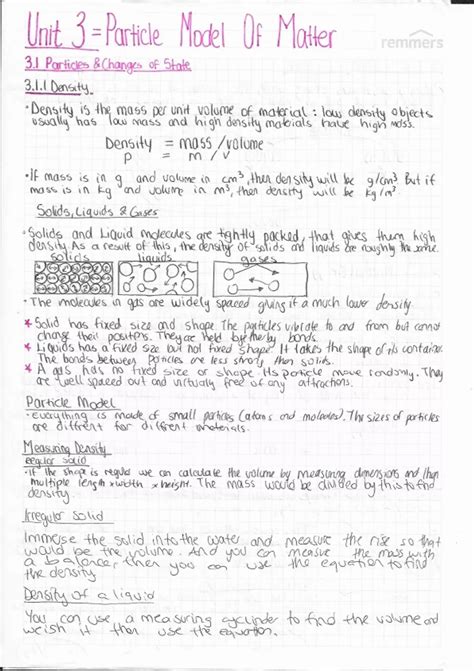 Unit 3 = Particle Model Of Matter
remmers
3.1 Particles & Changes of State
3.1.1 Density
• Density is the mass per unit volume of material : low density objects
usually has low mass and high density materials have high mass.
Density = mass / volume
p = m / v
• If mass is in g and volume in cm³, then density will be g/cm³. But if
mass is in kg and volume in m³, then density will be kg/m³
Solids, Liquids & Gases
• Solids and Liquid molecules are tightly packed, that gives them high
density. As a result of this, the density of solids and liquids are roughly the same.
solids liquids gases
• The molecules in gas are widely spaced giving it a much lower density.
* Solid has fixed size and shape The particles vibrate to and from but cannot
change their positions. They are held by bonds.
* Liquids has a fixed size but not fixed shape. It takes the shape of its container.
The bonds between Particles are less strong than solids.
* A gas has no fixed size or shape. Its particle move randomly. They
are well spaced out and virtualy free of any attractions.
Particle Model
• everything is made of small particles (atoms and molecules). The sizes of particles
are diffrent for diffrent materials.
Measuring Density
regular solid
• If the shape is regular we can calculate the volume by measuring dimensions and then
multiple length x width x height. The mass would be divided by this to find
density
Irregular solid
Immerse the solid into the water and measure the rise so that
would be the volume. And you can measure the mass with
a balancer then you can use the equation to find
the density
Density of a liquid
You can use a measuring cyclinder to find the volume and
weish it then use the equation.